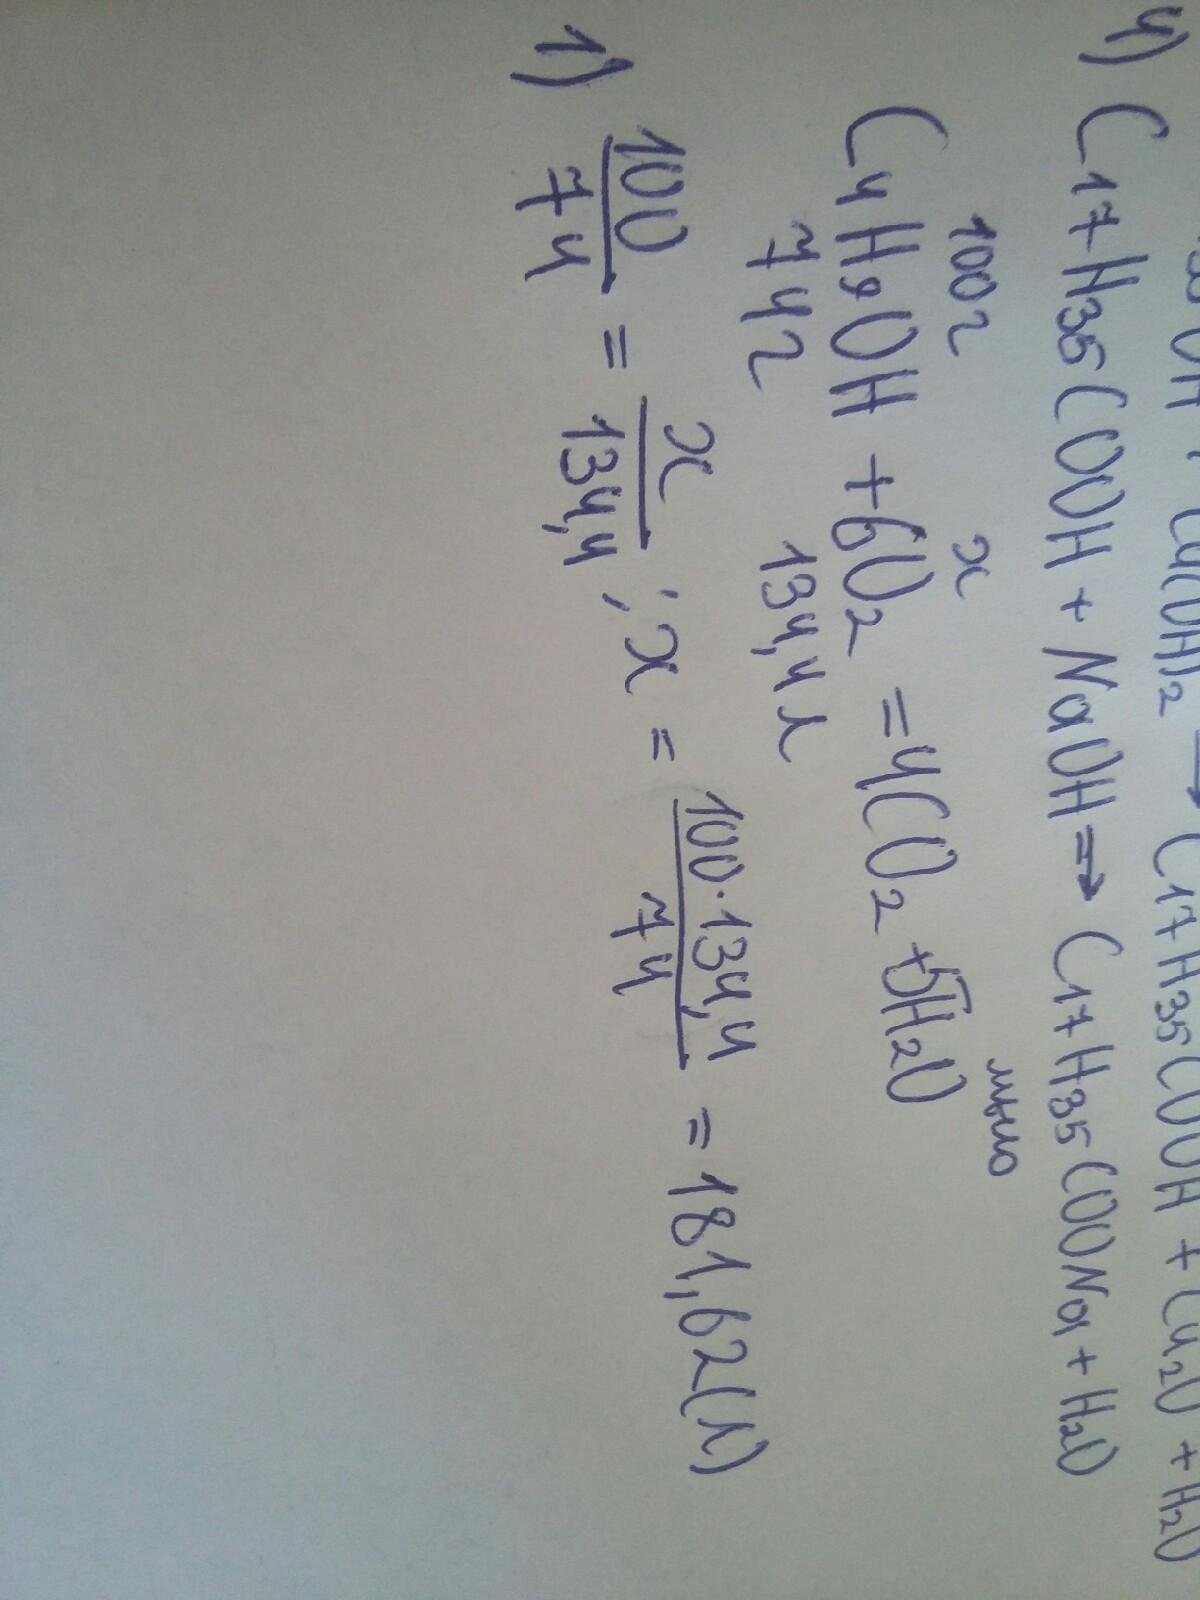 OH + Cu(OH)2 → C17H35COOH + Cu2O + H2O
4) C17H35COOH + NaOH ⇒ C17H35COONa + H2O
мыло
100г x
C4H9OH + 6O2 = 4CO2 + 5H2O
74г 134,4л
1) 100/74 = x/134,4 ; x = 100·134,4/74 = 181,62(л)